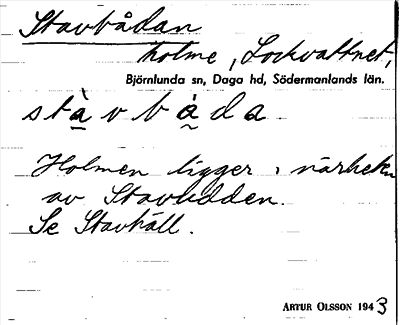 Stavbådan
holme, Lockvattnet,
Björnlunda sn, Daga hd, Södermanlands län.
stàvbåda
Holmen ligger i närheten
av Stavudden.
Se Stavhäll.
ARTUR OLSSON 1943